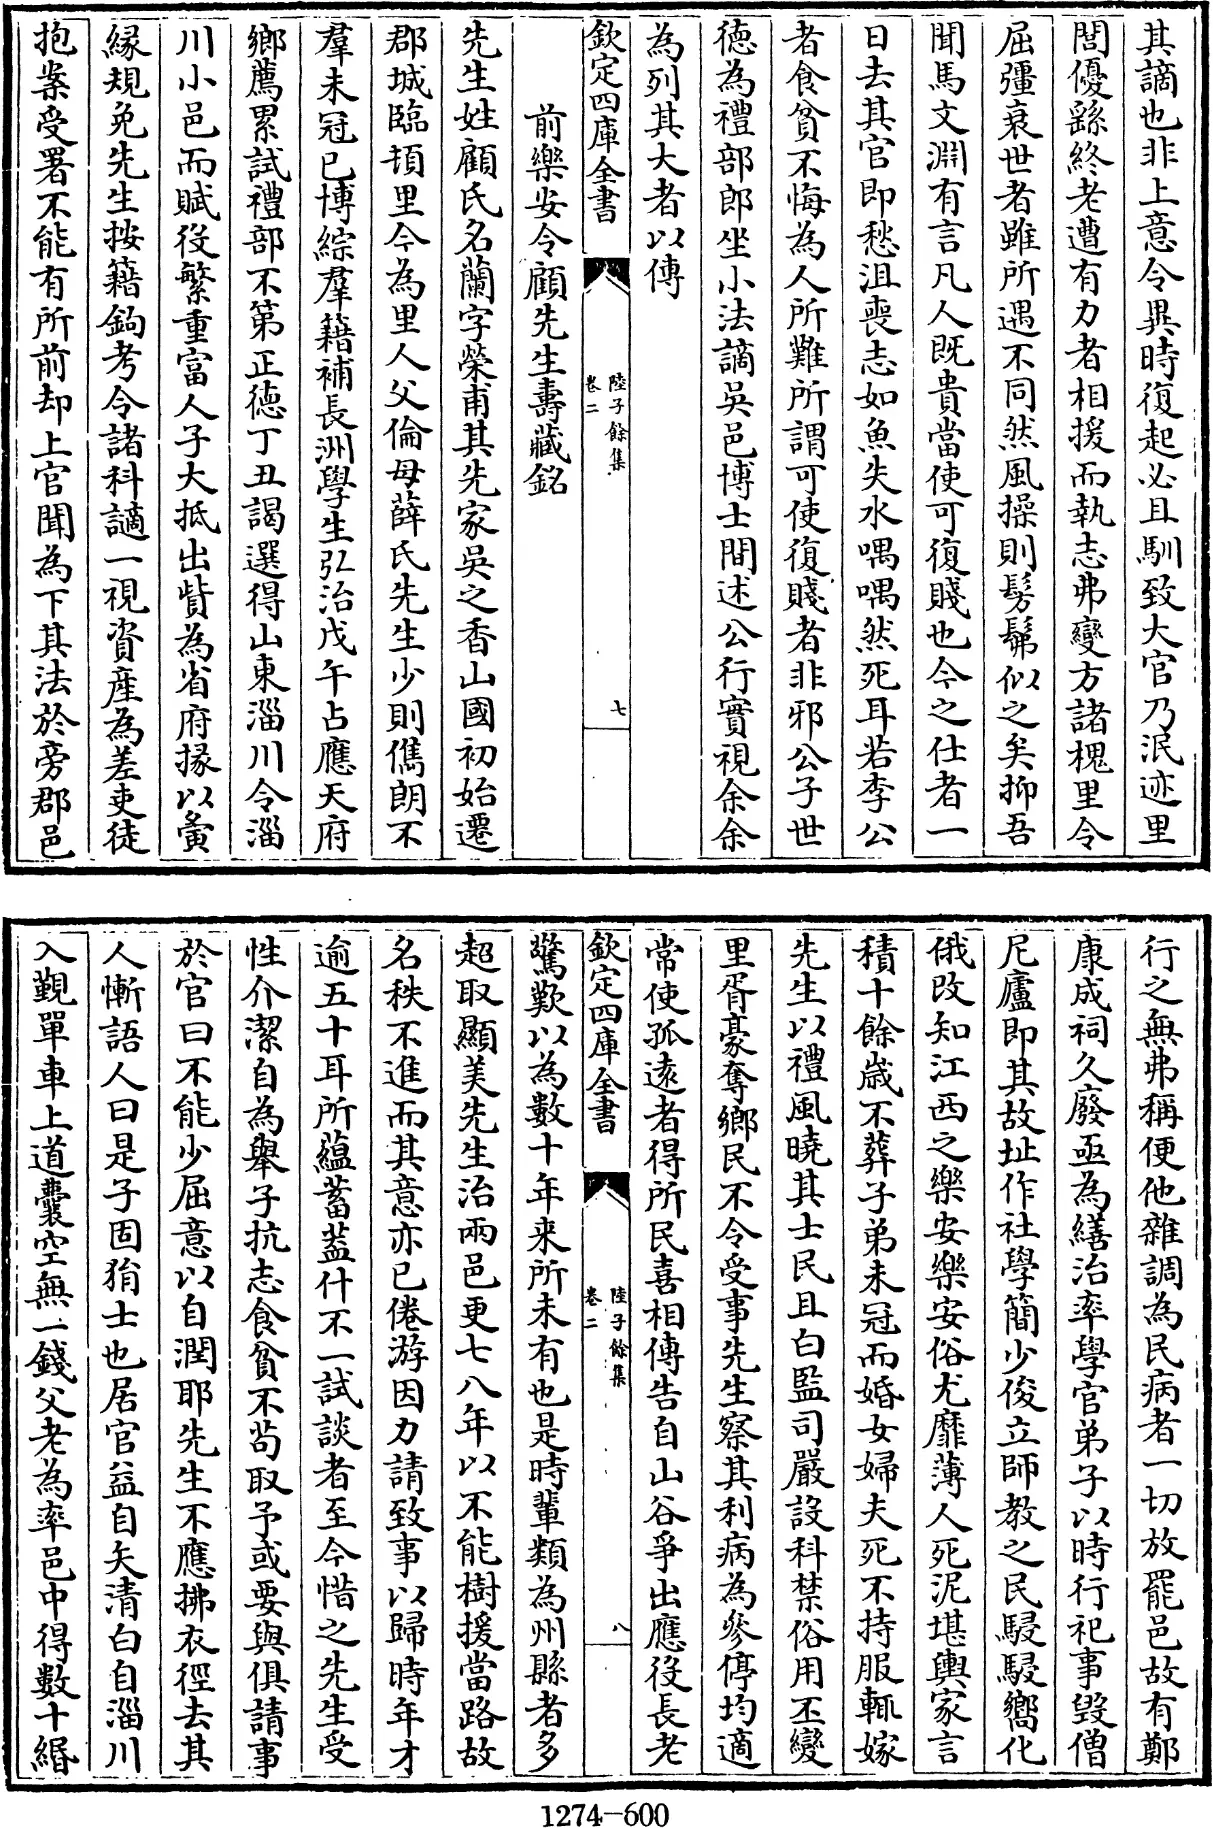 其謫也非上意令異時復起必且馴致大官乃泯迹里
閭優繇終老遭有力者相援而執志弗變方諸槐里令
屈彊衰世者雖所遇不同然風操則髣髴似之矣抑吾
聞馬文淵有言凡人既貴當使可復賤也今之仕者一
日去其官即愁沮喪志如魚失水喁喁然死耳若李公
者食貧不悔為人所難所謂可使復賤者非邪公子世
德為禮部郎坐小法謫吳邑博士間述公行實視余余
為列其大者以傳
欽定四庫全書
陸子餘集
卷二
七
前樂安令顧先生壽藏銘
先生姓顧氏名蘭字榮甫其先家吳之香山國初始遷
郡城臨頓里今為里人父倫母薛氏先生少則儁朗不
羣未冠已博綜羣籍補長洲學生弘治戊午占應天府
鄉薦累試禮部不第正德丁丑謁選得山東淄川令淄
川小邑而賦役繁重富人子大抵出貲為省府掾以夤
縁規免先生按籍鉤考令諸科讁一視資産為差吏徒
抱案受署不能有所前却上官聞為下其法於旁郡邑
行之無弗稱便他雜調為民病者一切放罷邑故有鄭
康成祠久廢亟為繕治率學官弟子以時行祀事毀僧
尼廬即其故址作社學簡少俊立師教之民駸駸嚮化
俄改知江西之樂安樂安俗尤靡薄人死泥堪輿家言
積十餘歳不葬子弟未冠而婚女婦夫死不持服輒嫁
先生以禮風曉其士民且白監司嚴設科禁俗用丕變
里胥豪奪鄉民不令受事先生察其利病為參停均適
常使孤逺者得所民喜相傳告自山谷爭出應役長老
欽定四庫全書
陸子餘集
卷二
八
驚歎以為數十年来所未有也是時輩類為州縣者多
超取顯美先生治兩邑更七八年以不能樹援當路故
名秩不進而其意亦已倦游因力請致事以歸時年才
逾五十耳所蘊蓄葢什不一試談者至今惜之先生受
性介潔自為舉子抗志食貧不茍取予或要與俱請事
於官曰不能少屈意以自潤耶先生不應拂衣徑去其
人慚語人曰是子固狷士也居官益自矢清白自淄川
入覲單車上道囊空無一錢父老為率邑中得數十緡
1274-600